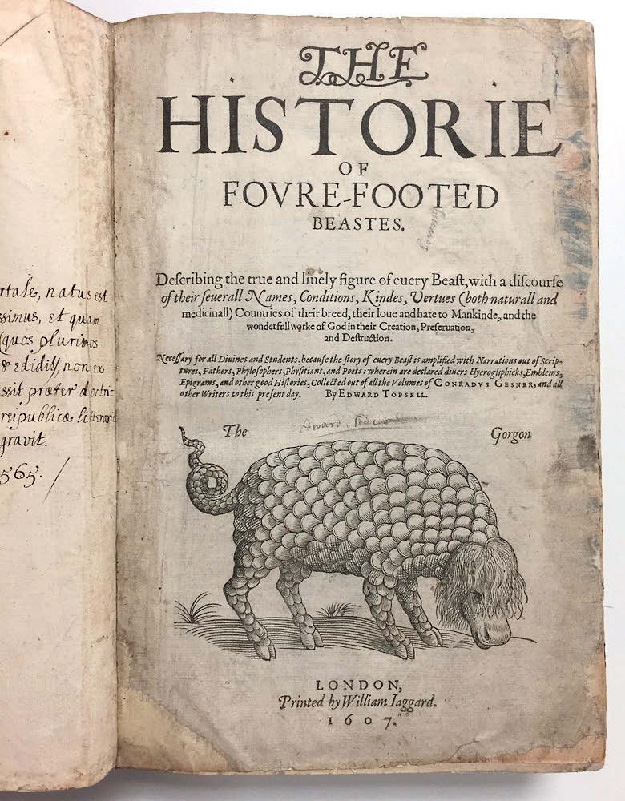 rtale, natus est
ssimus, et quam
quos plurimos
& edidit, non ex
ssit præter doctri-
reipublicæ literariæ
gravit.
565. /
THE
HISTORIE
OF
FOVRE-FOOTED
BEASTES.
Deſcribing the true and liuely figure of euery Beaſt, with a diſcourſe
of their ſeuerall Names, Conditions, Kindes, Vertues (both naturall and
medicinall) Countries of their breed, their loue and hate to Mankinde, and the
wonderfull worke of God in their Creation, Preſeruation,
and Deſtruction.
Neceſſary for all Diuines and Students, becauſe the ſtory of euery Beaſt is amplified with Narrations out of Scrip-
tures, Fathers, Phyloſophers, Phyſitians, and Poets: wherein are declared diuers Hyerogliphicks, Emblems,
Epigrams, and other good Hiſtories, Collected out of all the Volumes of CONRADVS GESNER, and all
other Writers to this preſent day. By EDWARD TOPSELL.
The Gorgon
LONDON,
Printed by William Iaggard.
1607.